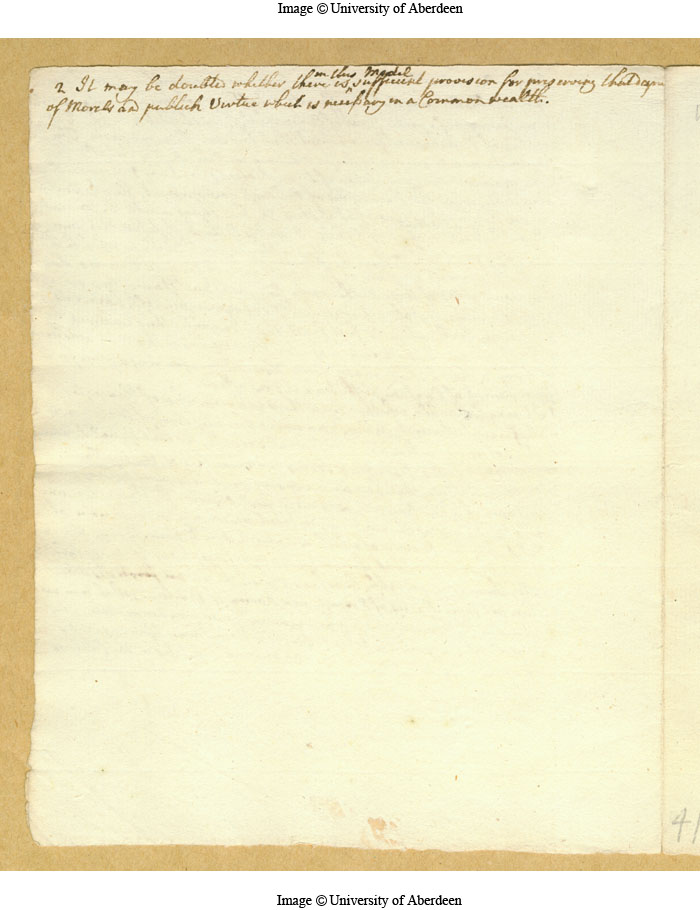 Image © University of Aberdeen
in this Model
2 It may be doubted whether there is ^ sufficient provision for preserving that degree
of Morals and publick Virtue which is necessary in a Common wealth.
4
Image © University of Aberdeen